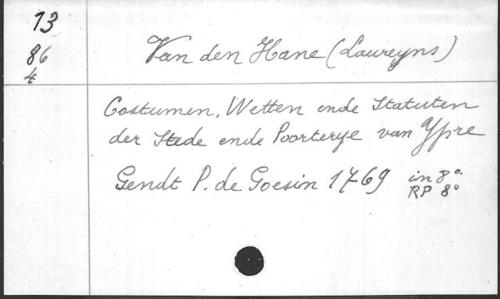 13
86
4
Van den Hane (Laureyns)
Costumen, Wetten ende Statuten
der Stede ende Poorterye van Ypre
Gendt P. de Goesin 1769 in 8°.
RP 8°